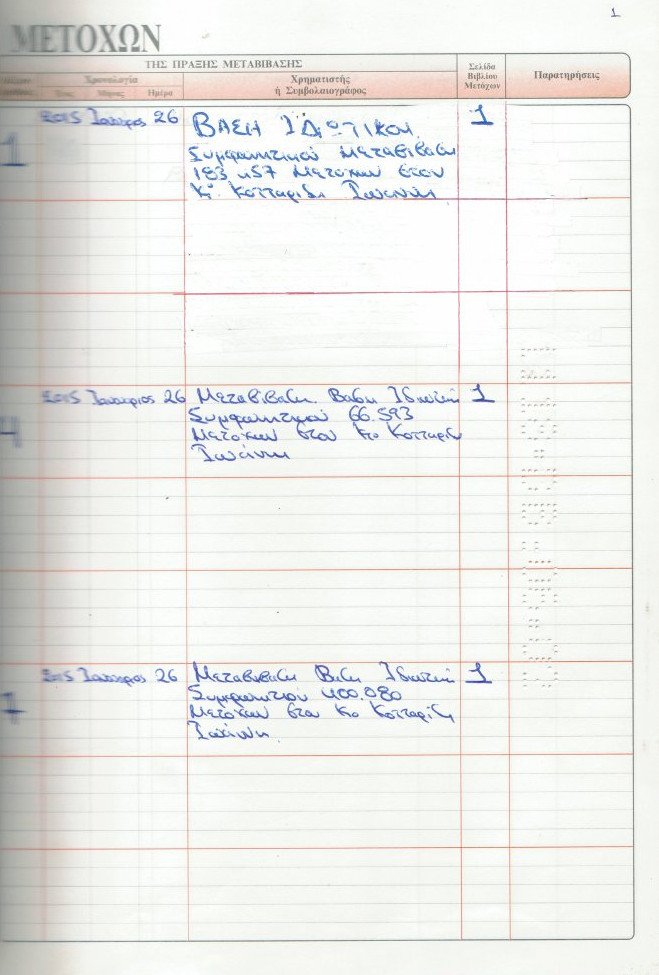 1
ΜΕΤΟΧΩΝ
ΤΗΣ ΠΡΑΞΗΣ ΜΕΤΑΒΙΒΑΣΗΣ
Σελίδα Βιβλίου Μετόχων
Παρατηρήσεις
Χρονολογία
Χρηματιστής
ή Συμβολαιογράφος
Έτος Μήνας Ημέρα
2015 Ιανουάριος 26 ΒΑΣΗ ΙΔΙΩΤΙΚΟΥ 1
Συμφωνητικού Μεταβίβαση
183.457 Μετοχών στον
Κο Κοτταρίδη Ιωάννη
2015 Ιανουάριος 26 Μεταβίβαση Βάση Ιδιωτικού 1
Συμφωνητικού 66.593
Μετοχών στον Κο Κοτταρίδη
Ιωάννη
2015 Ιανουάριος 26 Μεταβίβαση Βάση Ιδιωτικού 1
Συμφωνητικού 400.080
Μετοχών στον Κο Κοτταρίδη
Ιωάννη